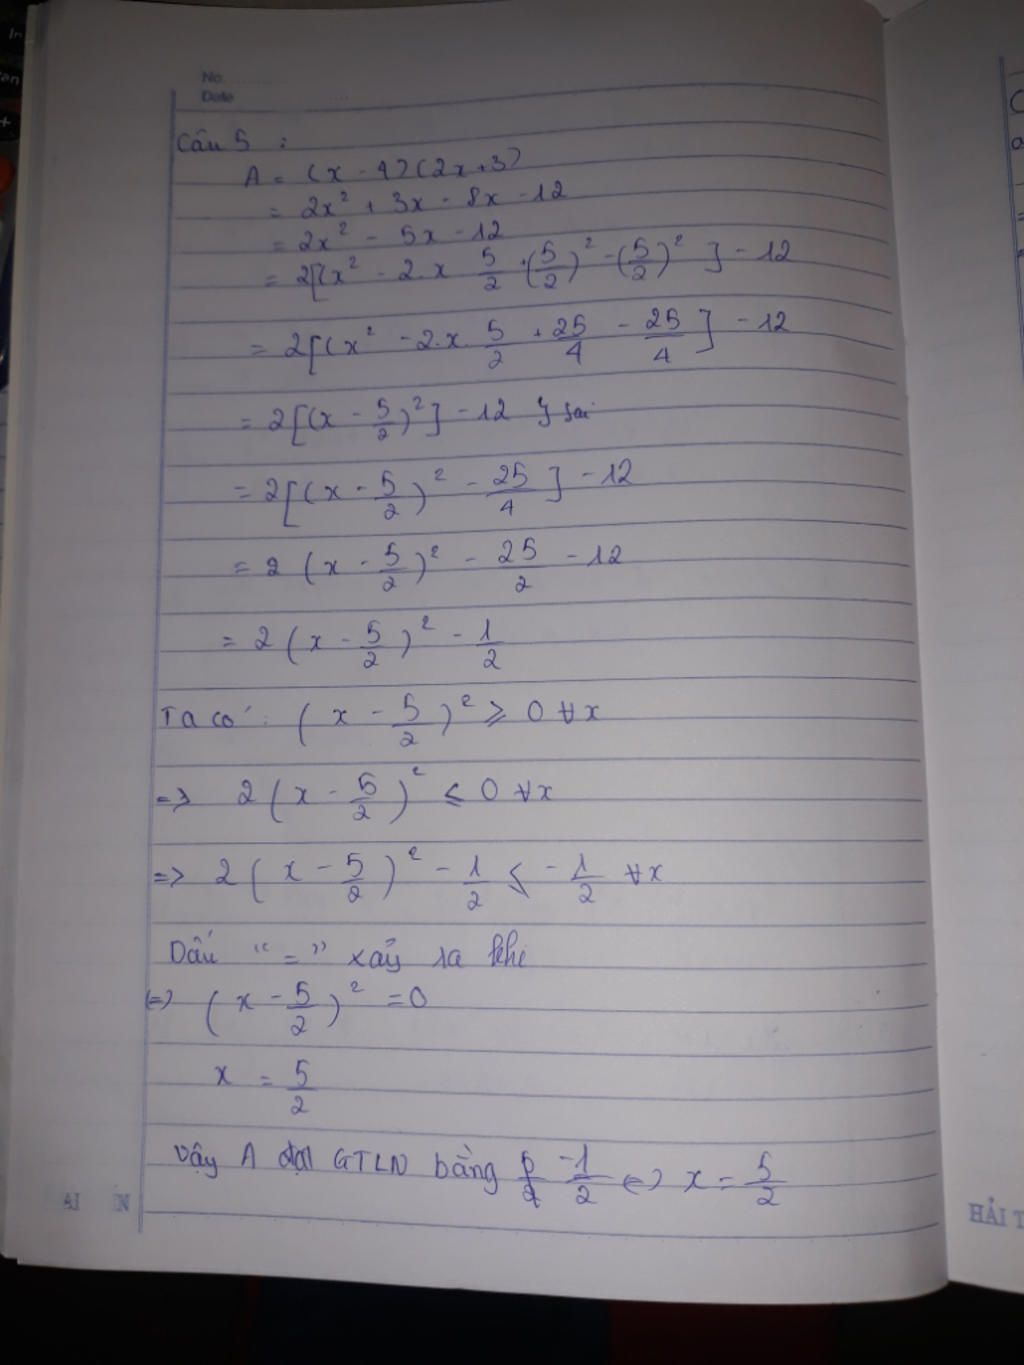 No
Date
Câu 5 :
A = (x - 4)(2x+3)
= 2x² + 3x - 8x - 12
= 2x² - 5x - 12
= 2[(x² - 2.x 5/2 + (5/2)² - (5/2)² ] - 12
= 2[(x² - 2.x. 5/2 + 25/4 - 25/4 ] - 12
= 2[(x - 5/2)²] - 12 } sai
= 2[(x - 5/2)² - 25/4 ] - 12
= 2 (x - 5/2)² - 25/2 - 12
= 2 (x - 5/2)² - 1/2
Ta có : (x - 5/2)² ≥ 0 ∀x
=> 2 (x - 5/2)² ≤ 0 ∀x
=> 2 (x - 5/2)² - 1/2 ≤ -1/2 ∀x
Dấu "=" xảy ra khi
(=) (x - 5/2)² = 0
x = 5/2
Vậy A đạt GTLN bằng -1/2 <=> x = 5/2
HẢI T